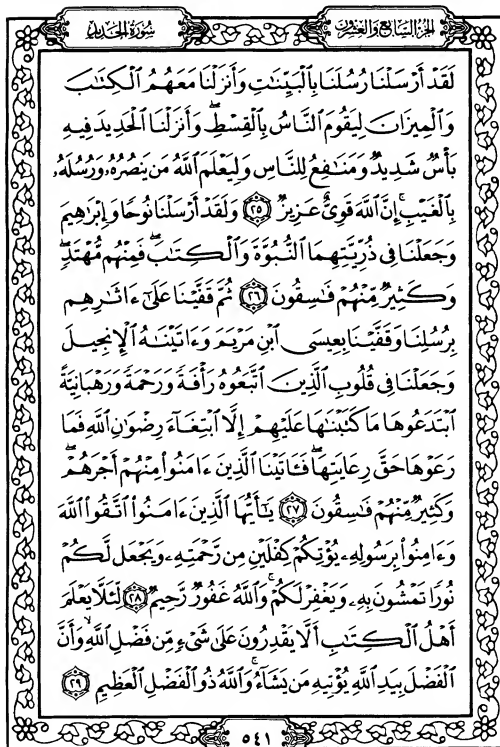 الجزء السابع والعشرون
سورة الحديد
لَقَدْ أَرْسَلْنَا رُسُلَنَا بِالْبَيِّنَٰتِ وَأَنزَلْنَا مَعَهُمُ الْكِتَٰبَ
وَالْمِيزَانَ لِيَقُومَ النَّاسُ بِالْقِسْطِ ۖ وَأَنزَلْنَا الْحَدِيدَ فِيهِ
بَأْسٌ شَدِيدٌ وَمَنَٰفِعُ لِلنَّاسِ وَلِيَعْلَمَ اللَّهُ مَن يَنصُرُهُۥ وَرُسُلَهُۥ
بِالْغَيْبِ ۚ إِنَّ اللَّهَ قَوِىٌّ عَزِيزٌ ٢٥ وَلَقَدْ أَرْسَلْنَا نُوحًا وَإِبْرَٰهِيمَ
وَجَعَلْنَا فِى ذُرِّيَّتِهِمَا النُّبُوَّةَ وَالْكِتَٰبَ ۖ فَمِنْهُم مُّهْتَدٍ ۖ
وَكَثِيرٌ مِّنْهُمْ فَٰسِقُونَ ٢٦ ثُمَّ قَفَّيْنَا عَلَىٰٓ ءَاثَٰرِهِم
بِرُسُلِنَا وَقَفَّيْنَا بِعِيسَى ابْنِ مَرْيَمَ وَءَاتَيْنَٰهُ الْإِنجِيلَ
وَجَعَلْنَا فِى قُلُوبِ الَّذِينَ اتَّبَعُوهُ رَأْفَةً وَرَحْمَةً وَرَهْبَانِيَّةً
ابْتَدَعُوهَا مَا كَتَبْنَٰهَا عَلَيْهِمْ إِلَّا ابْتِغَآءَ رِضْوَٰنِ اللَّهِ فَمَا
رَعَوْهَا حَقَّ رِعَايَتِهَا ۖ فَـَٔاتَيْنَا الَّذِينَ ءَامَنُوا مِنْهُمْ أَجْرَهُمْ ۖ
وَكَثِيرٌ مِّنْهُمْ فَٰسِقُونَ ٢٧ يَٰٓأَيُّهَا الَّذِينَ ءَامَنُوا اتَّقُوا اللَّهَ
وَءَامِنُوا بِرَسُولِهِۦ يُؤْتِكُمْ كِفْلَيْنِ مِن رَّحْمَتِهِۦ وَيَجْعَل لَّكُمْ
نُورًا تَمْشُونَ بِهِۦ وَيَغْفِرْ لَكُمْ ۚ وَاللَّهُ غَفُورٌ رَّحِيمٌ ٢٨ لِّئَلَّا يَعْلَمَ
أَهْلُ الْكِتَٰبِ أَلَّا يَقْدِرُونَ عَلَىٰ شَىْءٍ مِّن فَضْلِ اللَّهِ ۙ وَأَنَّ
الْفَضْلَ بِيَدِ اللَّهِ يُؤْتِيهِ مَن يَشَآءُ ۚ وَاللَّهُ ذُو الْفَضْلِ الْعَظِيمِ ٢٩
٥٤١